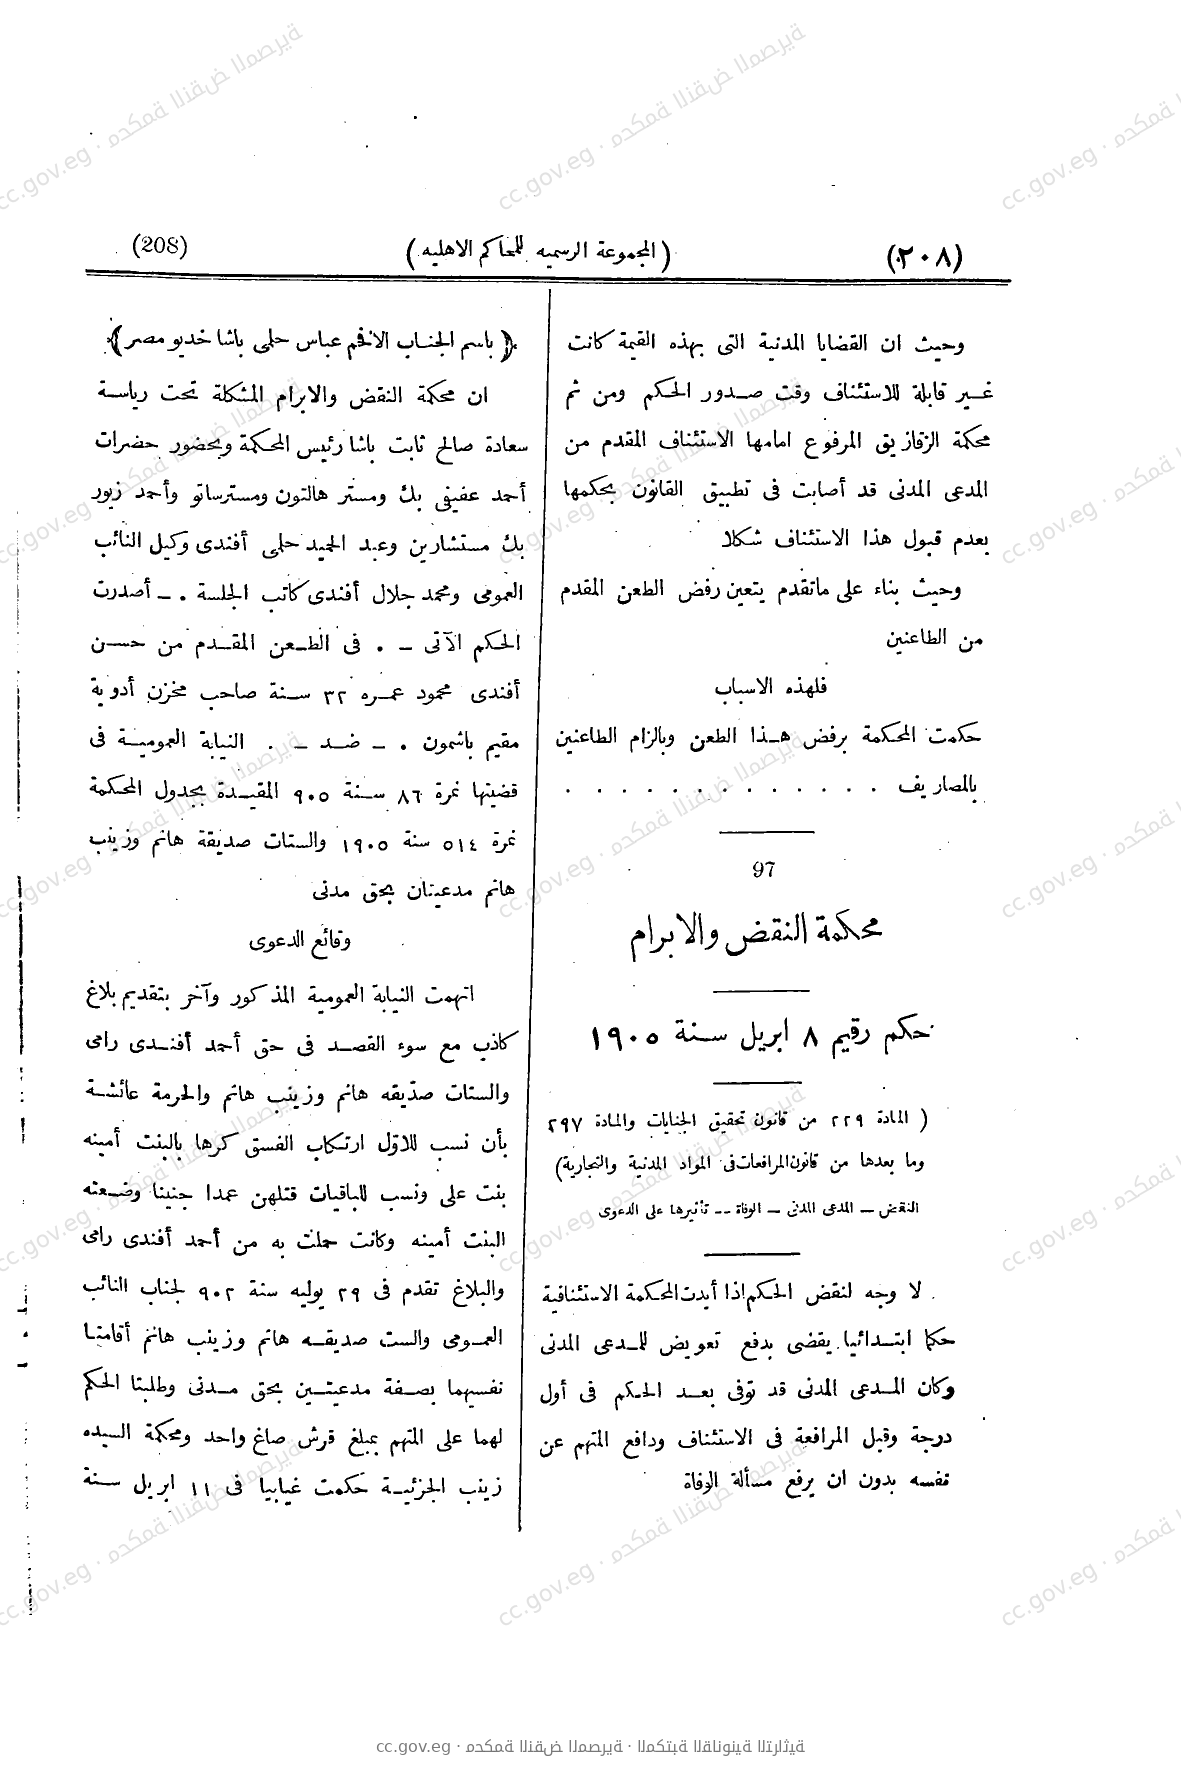 (٢٠٨) (المجموعة الرسميه للمحاكم الاهليه) (208)
وحيث ان القضايا المدنية التى بهذه القيمة كانت
غير قابلة للاستئناف وقت صدور الحكم ومن ثم
محكمة الزقازيق المرفوع امامها الاستئناف المقدم من
المدعى المدنى قد أصابت فى تطبيق القانون بحكمها
بعدم قبول هذا الاستئناف شكلا
وحيث بناء على ماتقدم يتعين رفض الطعن المقدم
من الطاعنين
فلهذه الاسباب
حكمت المحكمة برفض هذا الطعن وبالزام الطاعنين
بالمصاريف . . . . . . . . . . . . .
97
محكمة النقض والابرام
حكم رقيم ٨ ابريل سنة ١٩٠٥
( المادة ٢٢٩ من قانون تحقيق الجنايات والمادة ٢٩٧
وما بعدها من قانون المرافعات فى المواد المدنية والتجارية)
النقض — المدعى المدنى — الوفاة -- تأثيرها على الدعوى
لا وجه لنقض الحكم اذا أيدت المحكمة الاستئنافية
حكما ابتدائيا يقضى بدفع تعويض للمدعى المدنى
وكان المدعى المدنى قد توفى بعد الحكم فى أول
درجة وقبل المرافعة فى الاستئناف ودافع المتهم عن
نفسه بدون ان يرفع مسألة الوفاة
﴿ باسم الجناب الافخم عباس حلمى باشا خديو مصر ﴾
ان محكمة النقض والابرام المشكلة تحت رياسة
سعادة صالح ثابت باشا رئيس المحكمة وبحضور حضرات
أحمد عفيفى بك ومستر هالتون ومسترساتو وأحمد زيور
بك مستشارين وعبد المجيد حلمى أفندى وكيل النائب
العمومى ومحمد جلال أفندى كاتب الجلسة . — أصدرت
الحكم الآتى — . فى الطعن المقدم من حسن
أفندى محمود عمره ٣٢ سنة صاحب مخزن أدوية
مقيم باشمون . — ضد — . النيابة العمومية فى
قضيتها نمرة ٨٦ سنة ٩٠٥ المقيدة بجدول المحكمة
نمرة ٥١٤ سنة ١٩٠٥ والستات صديقة هانم وزينب
هانم مدعيتان بحق مدنى
وقائع الدعوى
اتهمت النيابة العمومية المذكور وآخر بتقديم بلاغ
كاذب مع سوء القصد فى حق أحمد أفندى رامى
والستات صديقه هانم وزينب هانم والحرمة عائشة
بأن نسب للاول ارتكاب الفسق كرها بالبنت أمينه
بنت على ونسب للباقيات قتلهن عمدا جنينا وضعته
البنت أمينه وكانت حملت به من أحمد أفندى رامى
والبلاغ تقدم فى ٢٩ يوليه سنة ٩٠٢ لجناب النائب
العمومى والست صديقه هانم وزينب هانم أقامتا
نفسيهما بصفة مدعيتين بحق مدنى وطلبتا الحكم
لهما على المتهم بمبلغ قرش صاغ واحد ومحكمة السيده
زينب الجزئية حكمت غيابيا فى ١١ ابريل سنة
cc.gov.eg · محكمة النقض المصرية · المكتبة القانونية التراثية